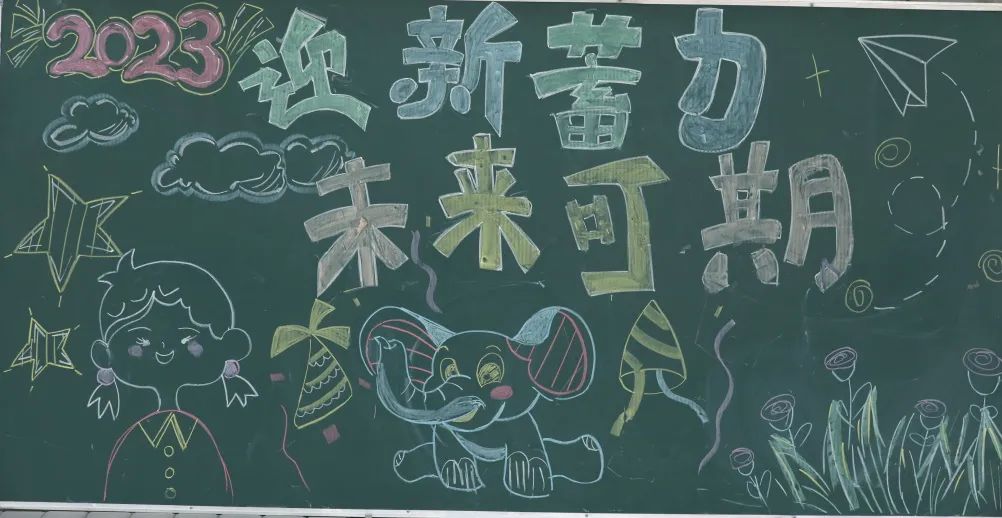 2023
迎新蓄力
未来可期